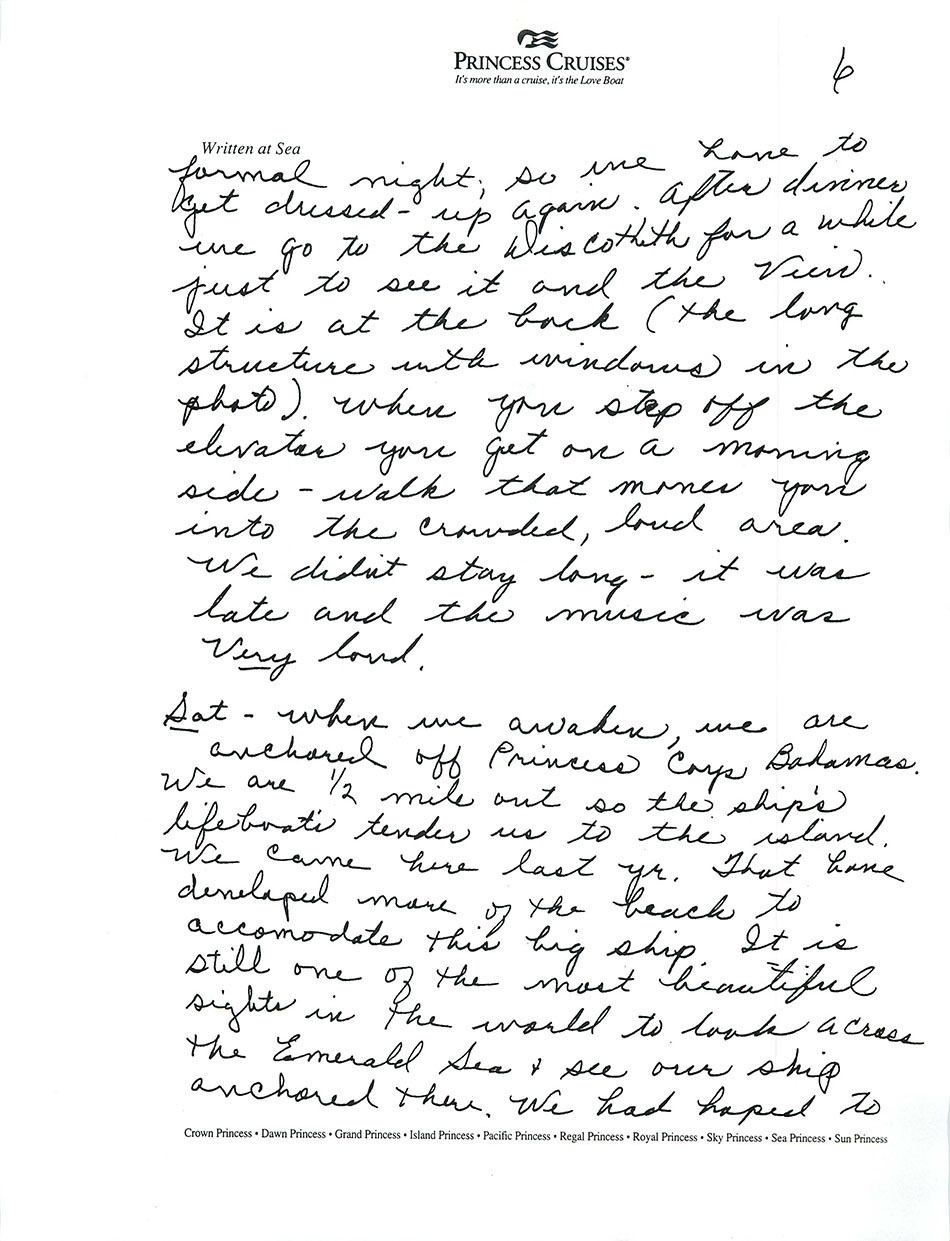 PRINCESS CRUISES®
It's more than a cruise, it's the Love Boat
6
Written at Sea
formal night, so we have to
get dressed-up again. After dinner
we go to the Discothith for a while
just to see it and the View.
It is at the back (the long
structure with windows) in the
photo). When you step off the
elevator you get on a moving
side-walk that moves you
into the crowded, loud area.
We didn't stay long - it was
late and the music was
Very loud.
Sat - when we awaken, we are
anchored off Princess Cays Bahamas.
We are 1/2 mile out so the ship's
lifeboats tender us to the island.
We came here last yr. That have
developed more of the beach to
accomodate this big ship. It is
still one of the most beautiful
sights in the world to look across
the Emerald Sea + see our ship
anchored there. We had hoped to
Crown Princess • Dawn Princess • Grand Princess • Island Princess • Pacific Princess • Regal Princess • Royal Princess • Sky Princess • Sea Princess • Sun Princess